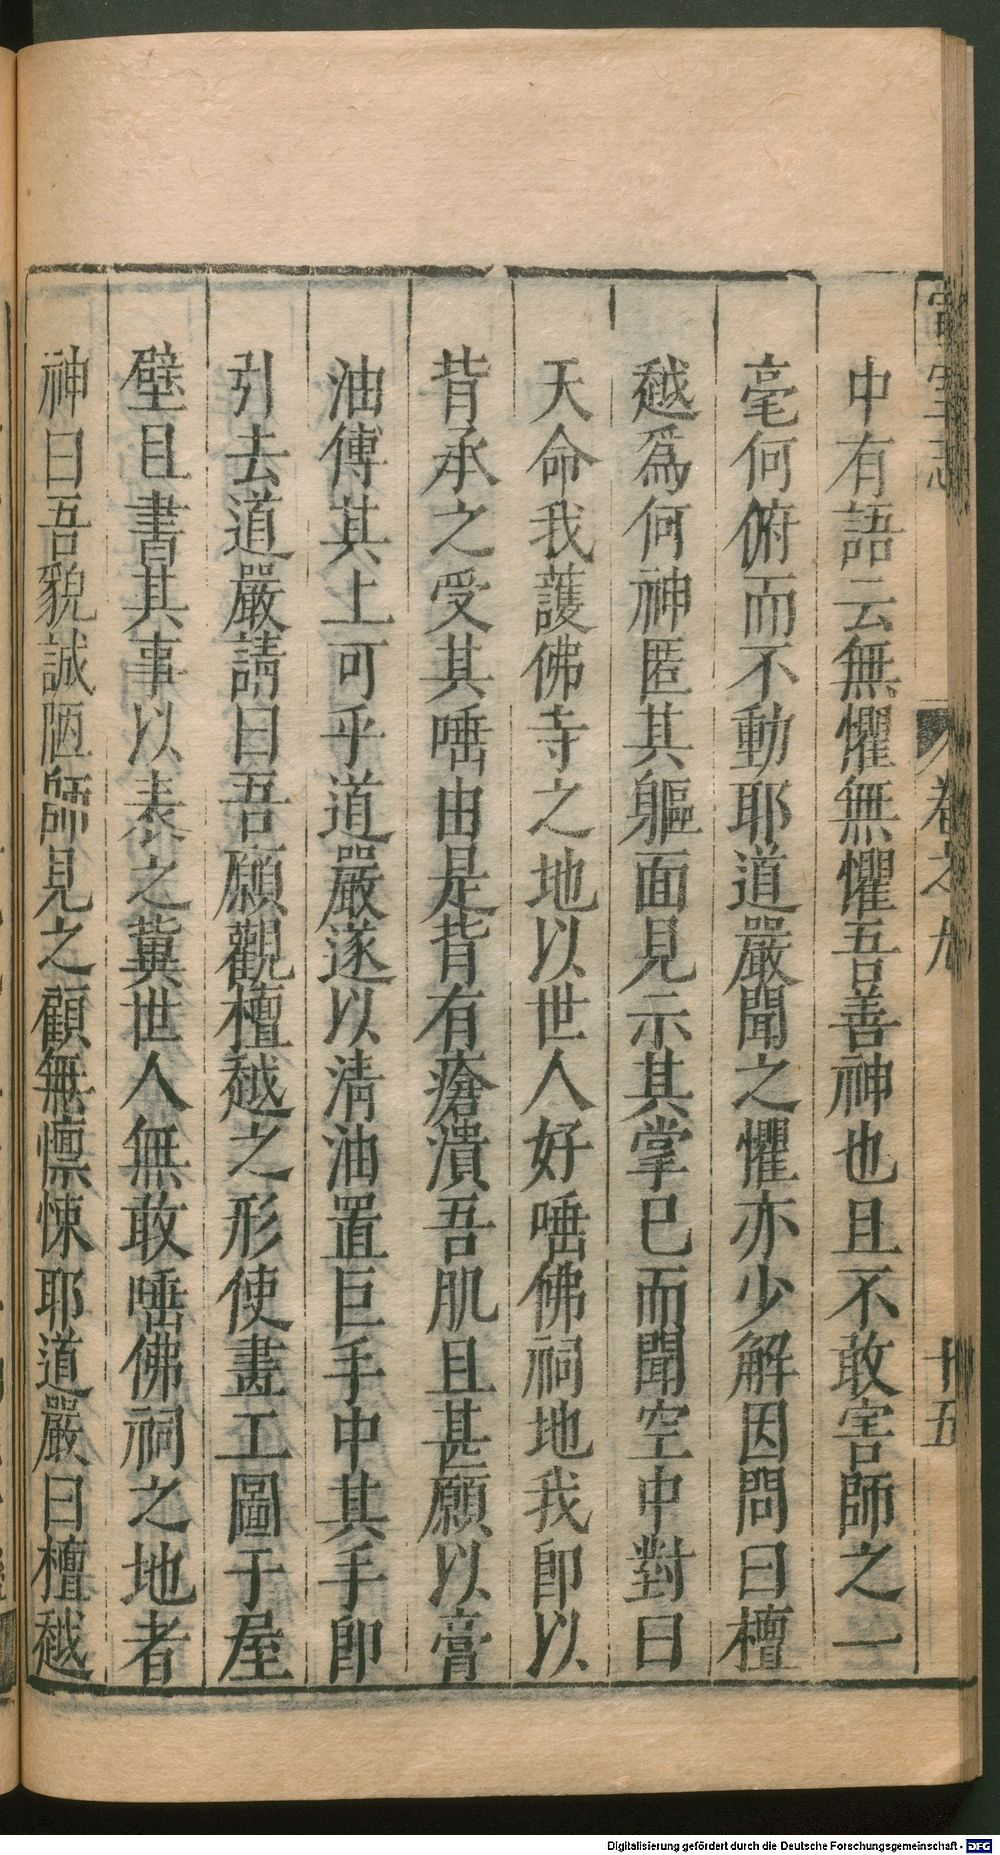 宣室志
卷之九
十五
中有語云無懼無懼吾善神也且不敢害師之一
毫何俯而不動耶道嚴聞之懼亦少解因問曰檀
越爲何神匿其軀面見示其掌已而聞空中對曰
天命我護佛寺之地以世人好唾佛祠地我卽以
背承之受其唾由是背有瘡潰吾肌且甚願以膏
油傅其上可乎道嚴遂以清油置巨手中其手卽
引去道嚴請曰吾願觀檀越之形使畫工圖于屋
壁且書其事以表之冀世人無敢唾佛祠之地者
神曰吾貌誠陋師見之顧無懍悚耶道嚴曰檀越
Digitalisierung gefördert durch die Deutsche Forschungsgemeinschaft - DFG